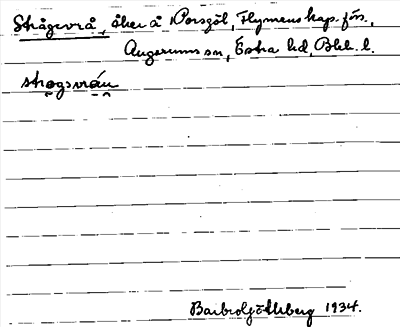 Strågevrå, åker å Porsgöl, Flymens kap. förs.,
Augerums sn, Östra hd, Blek. l.
strogsvråu
Barbro Götlsberg 1934.